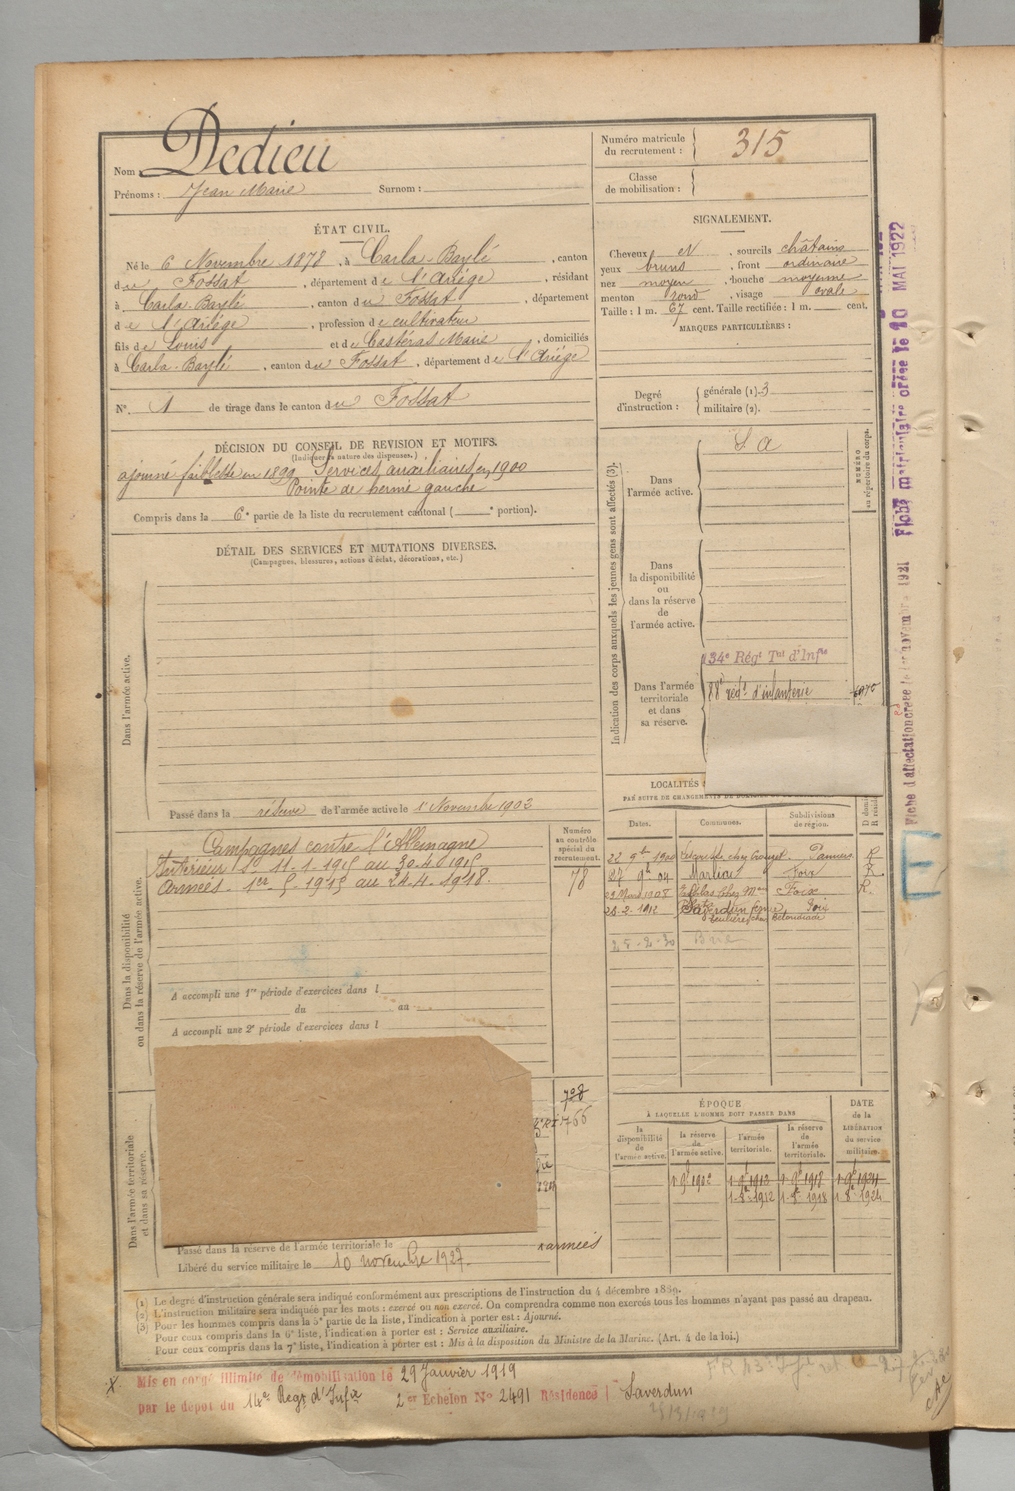 Nom Dedieu
Prénoms : Jean Marie Surnom :
Numéro matricule du recrutement : 315
Classe de mobilisation :
ÉTAT CIVIL.
Né le 6 Novembre 1878, à Carla-Baylé, canton
du Fossat, département de l'Ariége, résidant
à Carla-Baylé, canton du Fossat, département
de l'Ariége, profession de cultivateur
fils de Louis et de Castéras Marie, domiciliés
à Carla-Baylé, canton du Fossat, département de l'Ariége
N° 1 de tirage dans le canton du Fossat
SIGNALEMENT.
Cheveux et, sourcils châtains
yeux bruns, front ordinaire
nez moyen, bouche moyenne
menton rond, visage ovale
Taille : 1 m. 67 cent. Taille rectifiée : 1 m. cent.
MARQUES PARTICULIÈRES :
Degré d'instruction : générale (1). 3
militaire (2).
DÉCISION DU CONSEIL DE REVISION ET MOTIFS.
(Indiquer la nature des dispenses.)
ajourné faiblesse en 1899 Services auxiliaires en 1900
Pointe de hernie gauche
Compris dans la 6e partie de la liste du recrutement cantonal ( e portion).
DÉTAIL DES SERVICES ET MUTATIONS DIVERSES.
(Campagnes, blessures, actions d'éclat, décorations, etc.)
Dans l'armée active.
Passé dans la réserve de l'armée active le 1er Novembre 1902
Indication des corps auxquels les jeunes gens sont affectés (3).
NUMÉRO au répertoire du corps.
Dans l'armée active.
S A
Dans la disponibilité ou dans la réserve de l'armée active.
Dans l'armée territoriale et dans sa réserve.
34e Régt Tal d'Infie
88e régt d'infanterie
Dans la disponibilité ou dans la réserve de l'armée active.
Campagnes contre l'Allemagne
Intérieur du 11.1.1915 au 30.4.1915
Armées. 1er 5.1915 au 24.4.1918.
Numéro au contrôle spécial du recrutement.
78
A accompli une 1re période d'exercices dans l
du au
A accompli une 2e période d'exercices dans l
LOCALITÉS
PAR SUITE DE CHANGEMENTS DE
Dates. Communes. Subdivisions de région.
22 9bre 1900 Pamiers R
27 9bre 04 Foix R
29 Mars 1908 Foix R.
28-2-1912 Saverdun Foix
25-2-30
Dans l'armée territoriale et dans sa réserve.
708
1766
Passé dans la réserve de l'armée territoriale le
armées
Libéré du service militaire le 10 novembre 1927.
ÉPOQUE
À LAQUELLE L'HOMME DOIT PASSER DANS
la disponibilité de l'armée active.
la réserve de l'armée active.
l'armée territoriale.
la réserve de l'armée territoriale.
DATE de la LIBÉRATION du service militaire.
1 9bre 1902 1 9bre 1913 1 9bre 1918 1 9bre 1924
1 8bre 1912 1 8bre 1918 1 8bre 1924
(1) Le degré d'instruction générale sera indiqué conformément aux prescriptions de l'instruction du 4 décembre 1889.
(2) L'instruction militaire sera indiquée par les mots : exercé ou non exercé. On comprendra comme non exercés tous les hommes n'ayant pas passé au drapeau.
(3) Pour les hommes compris dans la 5e partie de la liste, l'indication à porter est : Ajourné.
Pour ceux compris dans la 6e liste, l'indication à porter est : Service auxiliaire.
Pour ceux compris dans la 7e liste, l'indication à porter est : Mis à la disposition du Ministre de la Marine. (Art. 4 de la loi.)
Mis en congé illimité de démobilisation le 29 Janvier 1919
par le dépôt du 14e Regt d'Infie 2e Echelon N° 2491 Résidence Saverdun
Fiche matriculaire créée le 10 MAI 1922
Fiche d'affectation créée le novembre 1921
E